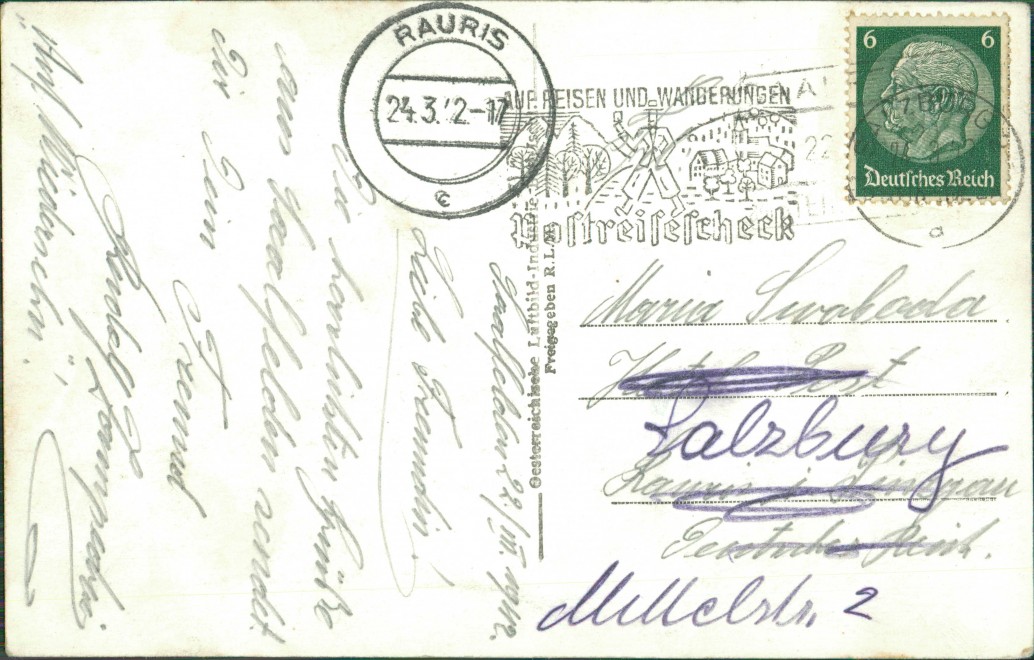 RAURIS
24.3.42-17
c
AUF REISEN UND WANDERUNGEN
Postreisescheck
6 6
Deutsches Reich
a
Oesterreichische Luftbild-Industrie
Freigegeben R.L.M.
Maria Swoboda
Hotel Post
Salzburg
Rauris i. Pinzgau
Deutsches Reich.
Mittelstr. 2
Saalfelden 22/III. 1942.
Liebe Freundin!
Die herzlichsten Grüße
aus Saalfelden sendet
Dir Dein
Freund
"Auf Wiedersehn!"